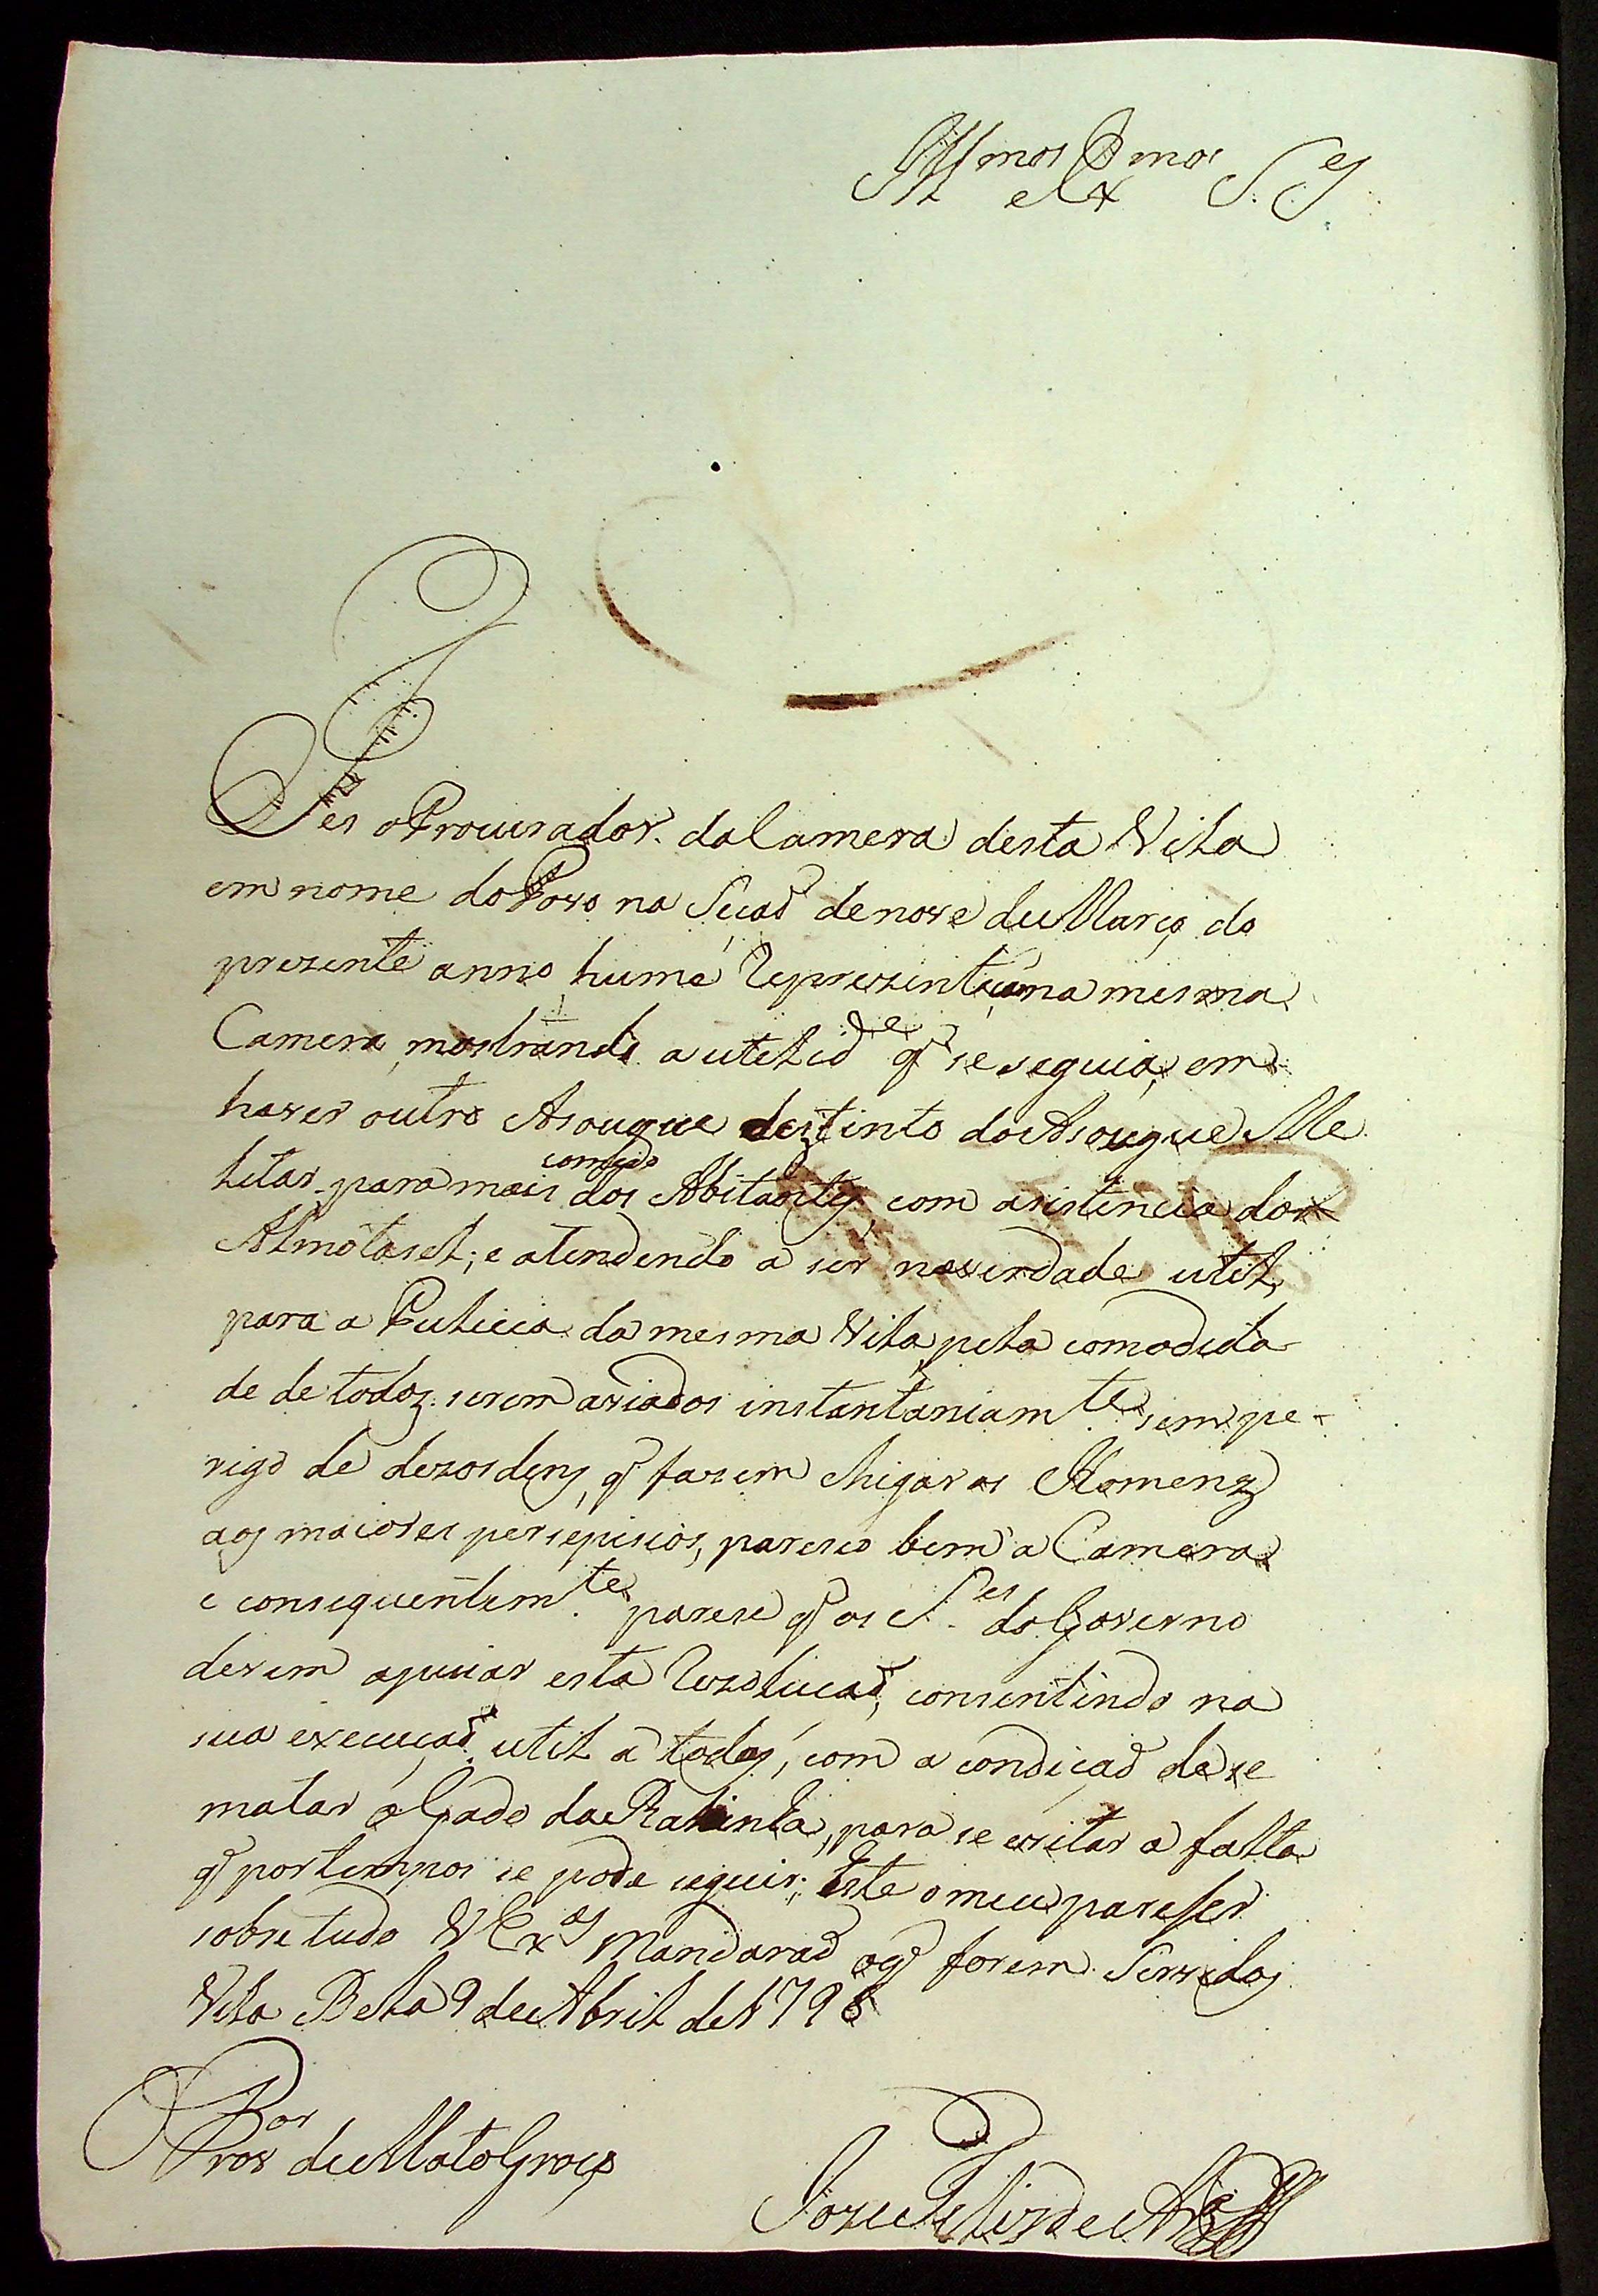 Ill.mos e Ex.mos S.res
Fes o Procurador da Camera desta Vila
em nome do Povo na Seçaõ de nove de Março do
prezente anno huma Reprezentçaõ na mesma
Camera, mostrando a utelid.de q̃ se seguia, em
haver outro Asougue destinto do Asougue Me
letar para mais comodo dos Abitantes, com asistencia dos
Almotasel; e atendendo a ser na verdade util,
para a Pulicia da mesma Vila, pela comodida
de de todos serem aviados instantaniam.te sem pe-
rigo de dezordens, q̃ fasem chigar os Homens
aos maiores persepisios, pareseo bem a Camera
e consequentem.te parese q̃ os S.res do Governo
devem apuiar esta Rezoluçaõ, consentindo na
sua execuçaõ util a todos, com a condiçaõ de se
matar o Gado da Rainha, para se evitar a falta
q̃ por tempos se pode seguir; Este o meu pareser
sobre tudo V Ex.as Mandaraõ o q̃ forem Servidos
Vila Bela 9 de Abril de 1796
O Prov.or de Mato Groço
Joze Feliz de